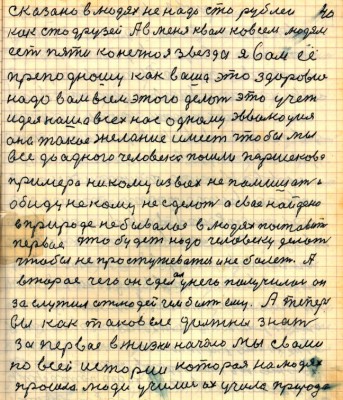 сказано в людях не надо сто рублей 40
как сто друзей А в меня к вам ко всем людям
есть пяти конечноя звезда я Вам её
преподношу как ваша это здоровие
надо вам всем этого делат это учет
идея наша всех нас одному эвиакоция
она такое желание имеет чтобы мы
все до адного человека пошли паришекова
примера никому из вах не памишат
обиду не кому не сделот а свае найдено
в природе небывалая в людях поставит
первае это будет надо человеку делат
чтобы не простужеватися не болет. А
второе чего он сделал у него получилис он
заслужил от людей чим быт ему. А тепер
вы как таковые должны знат
за первае в жизни начало мы с вами
по всей истории которая на людях
прошла люди училис их учила природа